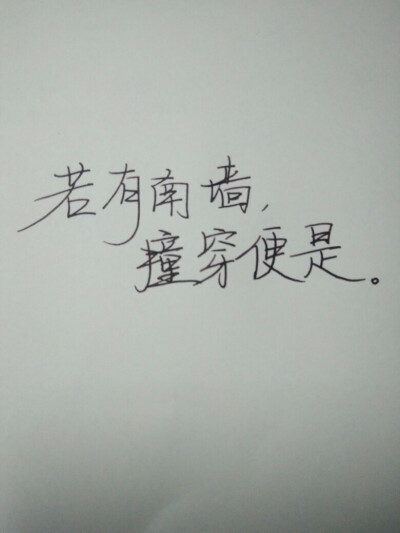 若有南墙，
撞穿便是。